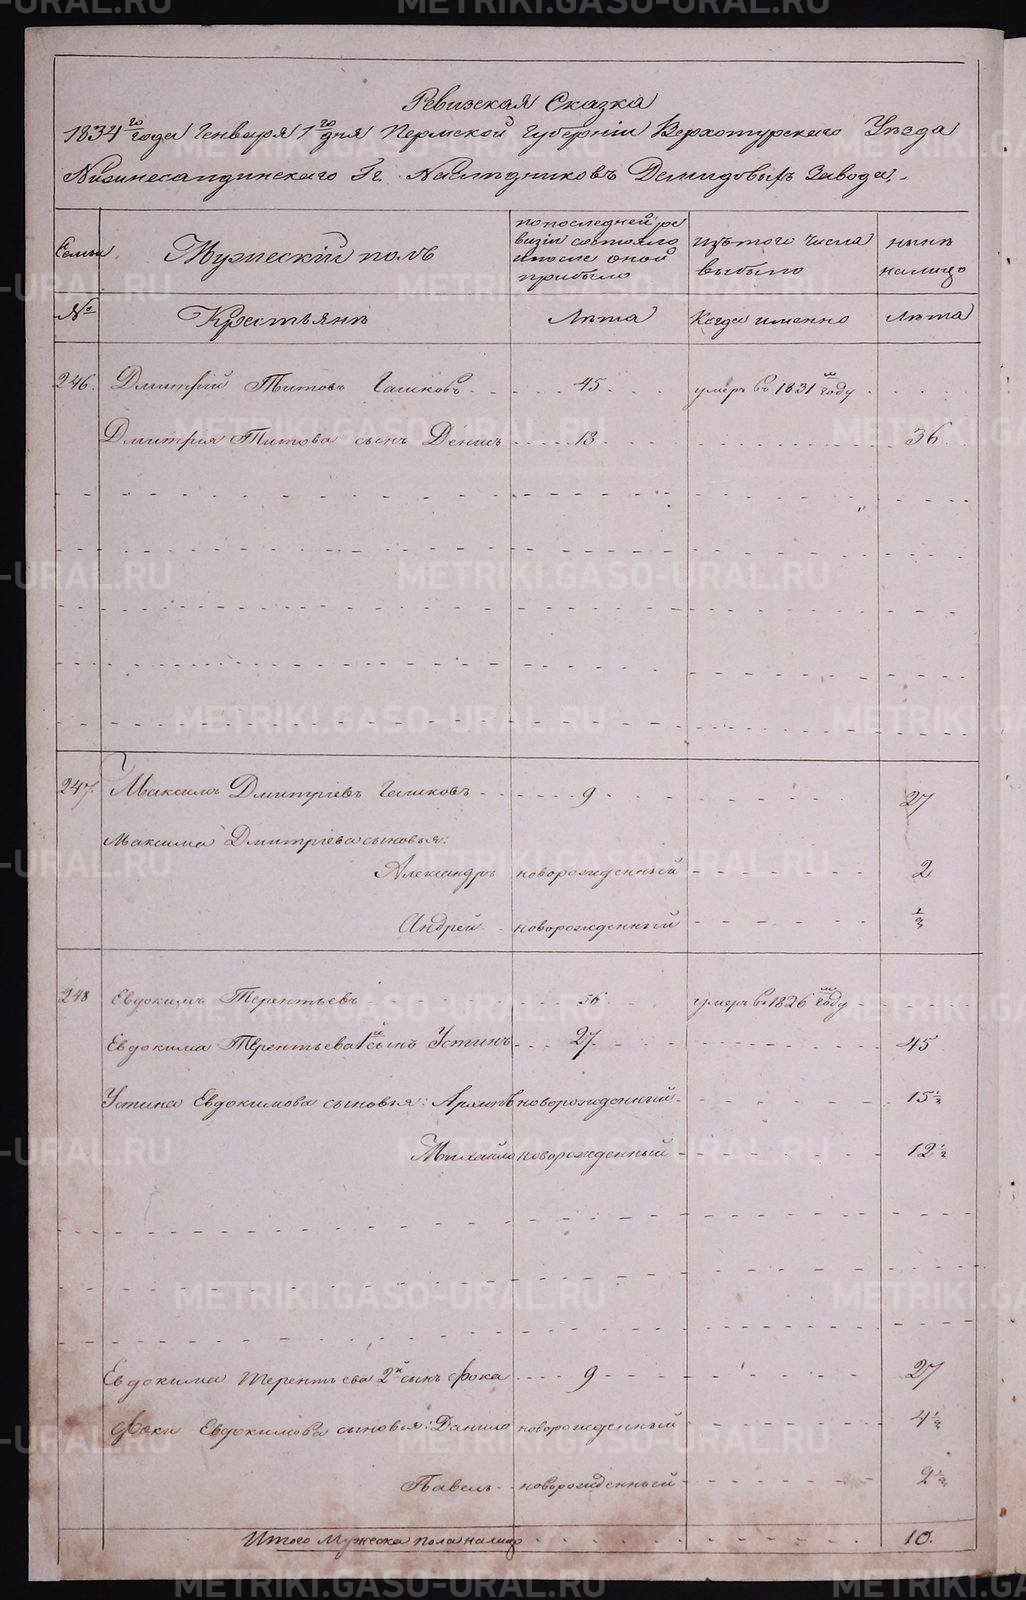 Ревизская Сказка
1834го года Генваря 1го дня Пермской Губерніи Верхотурскаго Уезда
Нижнесалдинскаго Гг. Наследниковъ Демидовыхъ Завода,
Семьи
Мужескій полъ
по последней ре
визіи состояло
и после оной
прибыло
изъ того числа
выбыло
ныне
налицо
№
Крестьяне
Лета
Когда именно
Лета
246. Дмитрий Титовъ Гашковъ 45 умеръ въ 1831м году
Дмитрия Титова сынъ Денисъ 18 36
247. Максимъ Дмитріевъ Гашковъ 9 27
Максима Дмитріева сыновья:
Александръ новорожденный 2
Андрей новорожденный 1/2
248 Евдокимъ Терентьевъ 56 умеръ въ 1826м году
Евдокима Терентьева 1й сынъ Устинъ 27 45
Устина Евдокимова сыновья: Архипъ новорожденный 15 1/2
Михайло новорожденный 12 1/2
Евдокима Терентьева 2й сынъ Фока 9 27
Фоки Евдокимова сыновья: Данило новорожденный 4 1/2
Павелъ новорожденный 2 1/2
Итого мужеска пола налицо 10.
METRIKI.GASO-URAL.RU